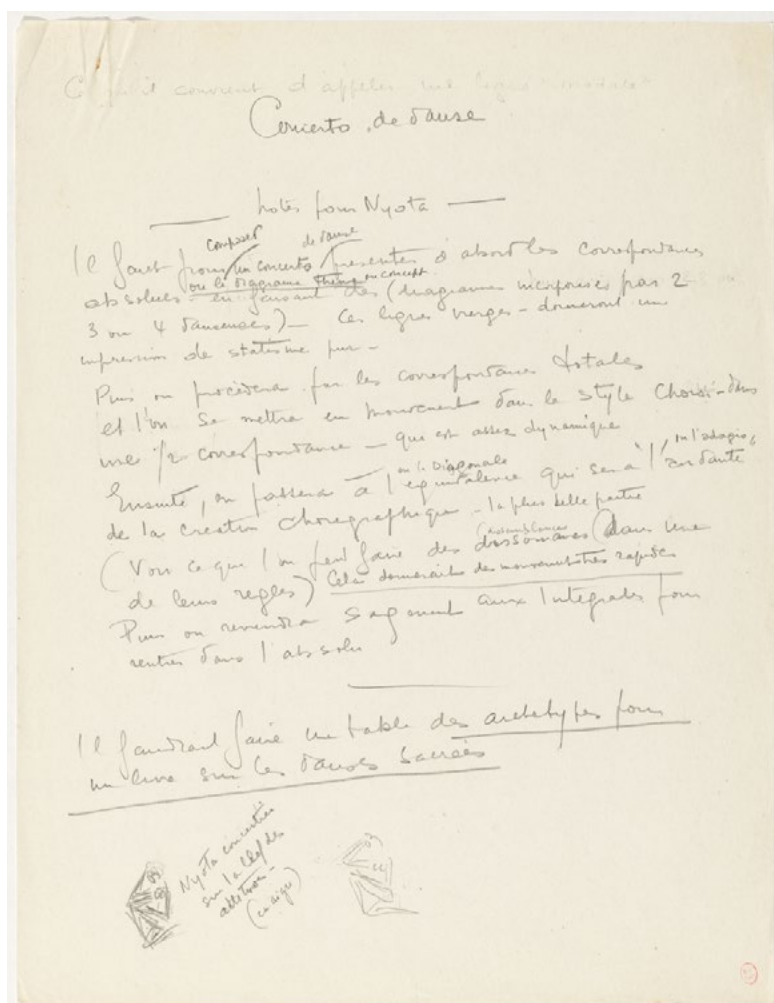 Ce qu'il convient d'appeler une ligne
Concerto de danse
notes pour Nyota
composer de danse
Il faut pour un concerto presenter d'abord les correspondances
ou le diagramme thème ou concept
absolues - en faisant des (diagrammes incorporés par 2
3 ou 4 danseuses) - Ces lignes vierges - donneront une
impression de statisme pur -
Puis on procèdera par les correspondances totales
et l'on se mettra en mouvement dans le style choisi - dans
une 1/2 correspondance - qui est assez dynamique
ou la Diagonale , ou l'adagio,
Ensuite, on passera à l'équivalence qui sera l'andante
de la creation choregraphique - la plus belle partie
assemblances
(Voir ce que l'on peut faire des dissonances (dans une
de leurs regles) Cela donnerait des mouvements très rapides
Puis on reviendra sagement aux Integrales pour
rentrer dans l'absolu
Il faudrait faire une table des archetypes pour
un livre sur les danses sacrées
Nyota concentrée
sur la clef des